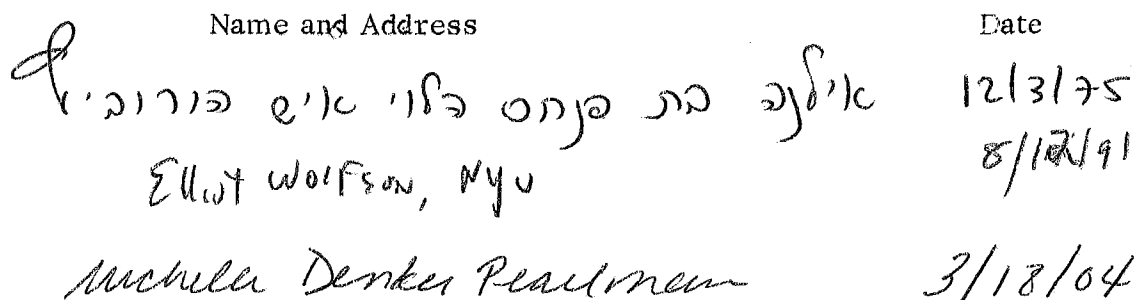 Name and Address Date
אילנה בת פנחס הלוי איש הורוביץ 12/3/75
8/12/91
Elliot Wolfson, NYU
Denker Pearlman 3/18/04